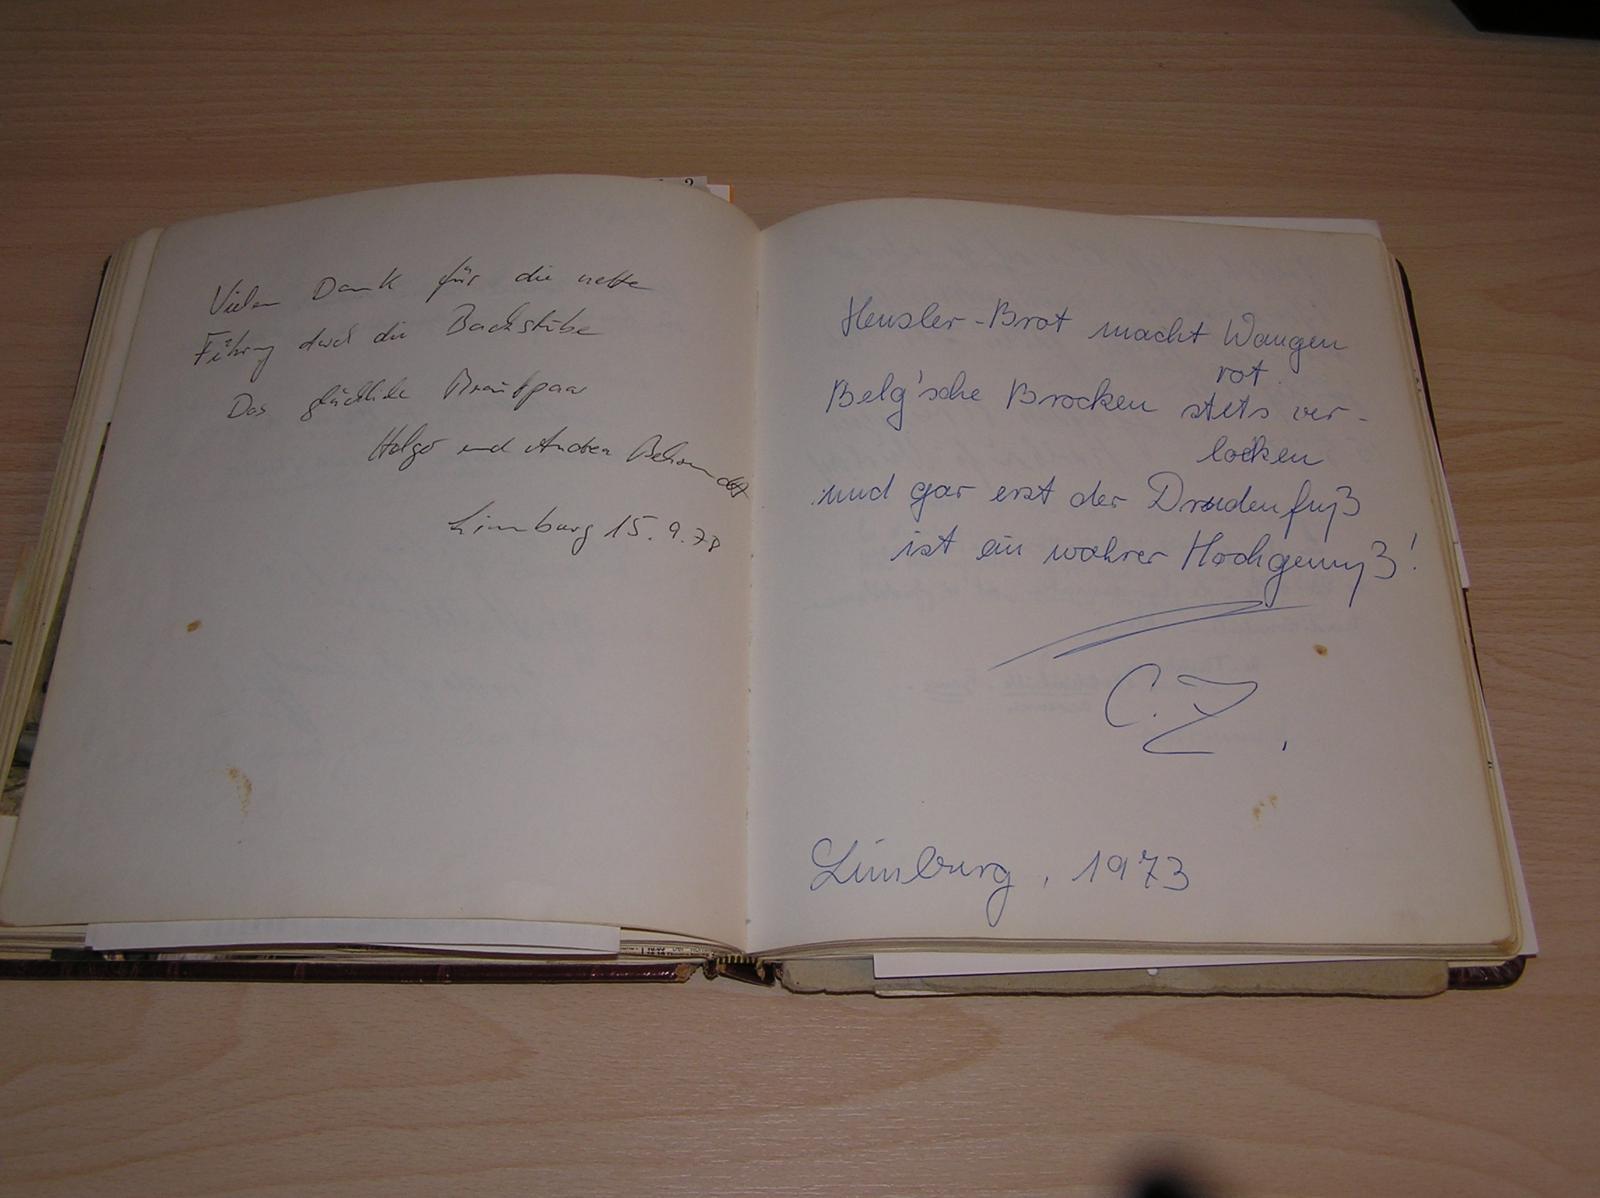 Vielen Dank für die nette
Führung durch die Backstube
Das glückliche Brautpaar
Holger und Andrea
Limburg 15.9.78
Hensler-Brot macht Wangen
rot
Belg'sche Brocken stets ver-
locken
und gar erst der Drudenfuß
ist ein wahrer Hochgenuß!
C. Z.
Limburg, 1973